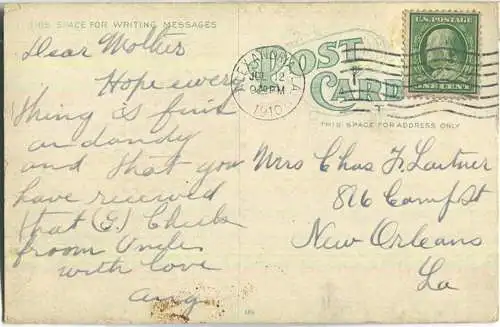 THIS SPACE FOR WRITING MESSAGES
Dear Mother
Hope every
thing is fine
an dandy
and that you
have received
that (G.) Check
froom Uncle
with love
POST
CARD
THIS SPACE FOR ADDRESS ONLY
ALEXANDRIA, LA
12
PM
1910
U.S. POSTAGE
Mrs Chas F. Lartner
816 Camp St
New Orleans
La